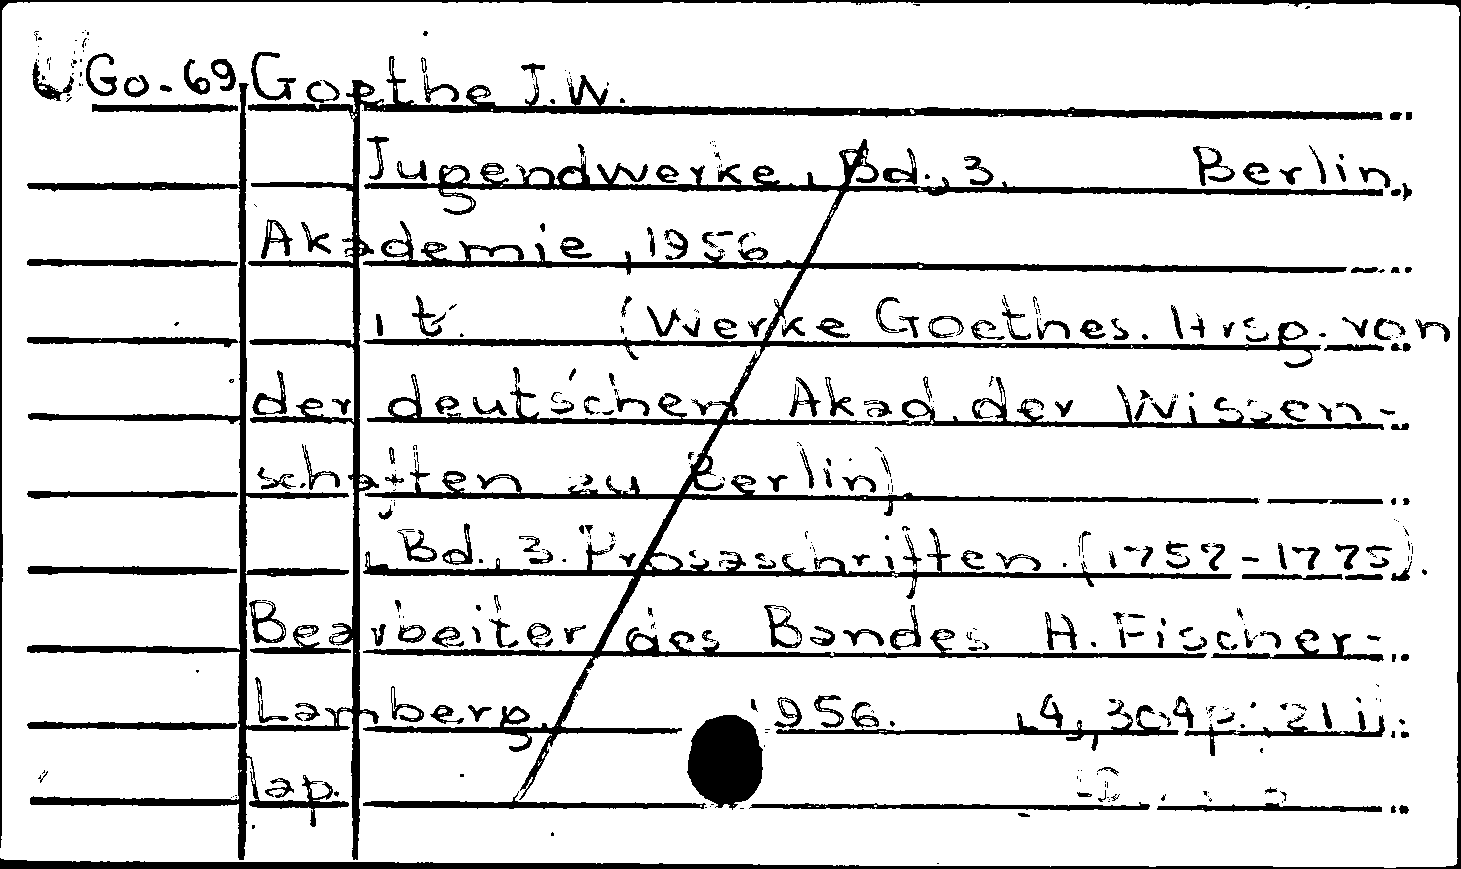 U Go-69 Goethe J.W.
Jugendwerke., Bd., 3. Berlin,
Akademie, 1956.
, t. (Werke Goethes. Hrsg. von
der deutschen Akad. der Wissen-
schaften zu Berlin).
, Bd., 3. Prosaschriften. (1757-1775).
Bearbeiter des Bandes H. Fischer-
Lamberg. 1956. , 4, 304p., 21 il.
lap.